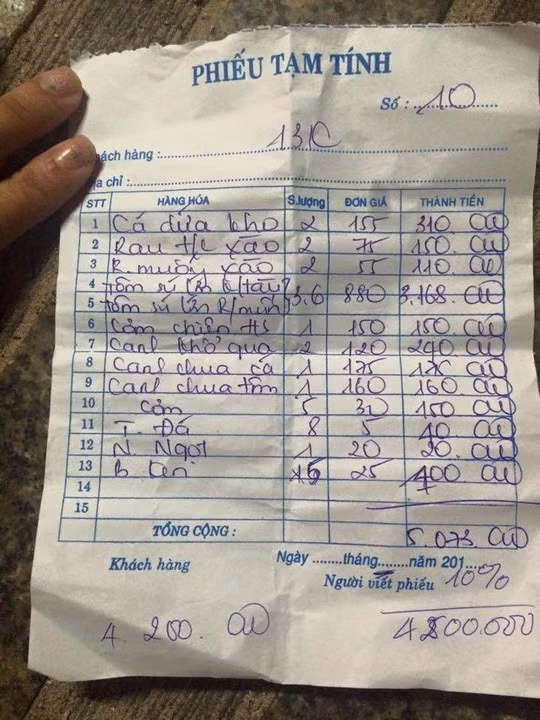 PHIẾU TẠM TÍNH
Số : 10
hách hàng : 13K
ịa chỉ :
STT HÀNG HÓA S.lượng ĐƠN GIÁ THÀNH TIỀN
1 Cá dứa kho 2 155 310
2 Rau t/c xào 2 75 150.
3 R. muống xào 2 55 110.
4 Tôm sú
5 Tôm sú 3.6 880 3.168.
6 Cơm chiên HS 1 150 150
7 Canh khổ qua 2 120 240
8 Canh chua cá 1 175 175
9 Canh chua tôm 1 160 160
10 Cơm 5 30 150
11 T. Đá 8 5 40
12 N. Ngọt 1 20 20.
13 B. 25 400
14
15
TỔNG CỘNG : 5.073.
Khách hàng
Ngày ........tháng........năm 201....
Người viết phiếu 10%
4. 200.